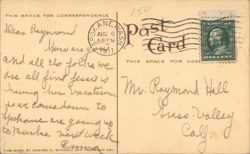 150
THIS SPACE FOR CORRESPONDENCE
Post
Card
SPOKANE, WASH.
AUG 6
5 PM
1911
Dear Raymond
How are you
and all the folks we
are all fine Jessie is
having her vacation
we are
down to
Spokane are going up
to next week
Emma
THIS SPACE FOR ADD
Mr. Raymond Hall
Grass Valley
Calif
PUBLISHED BY EDWARD H. MITCHELL